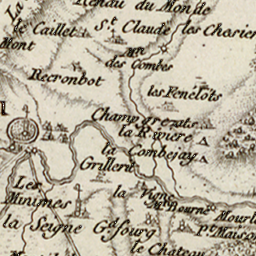 Renau du Mon
le Caillet
S.t Claude
les Chasier
Mont
M.n
des Combes
Recronbot
les Fenélots
Champ
la Riviere
la Combejay
Grillerit
Les
Minimes
la
Bourne
la Seigne
G.d fourg
P.te Maison
le Chateau